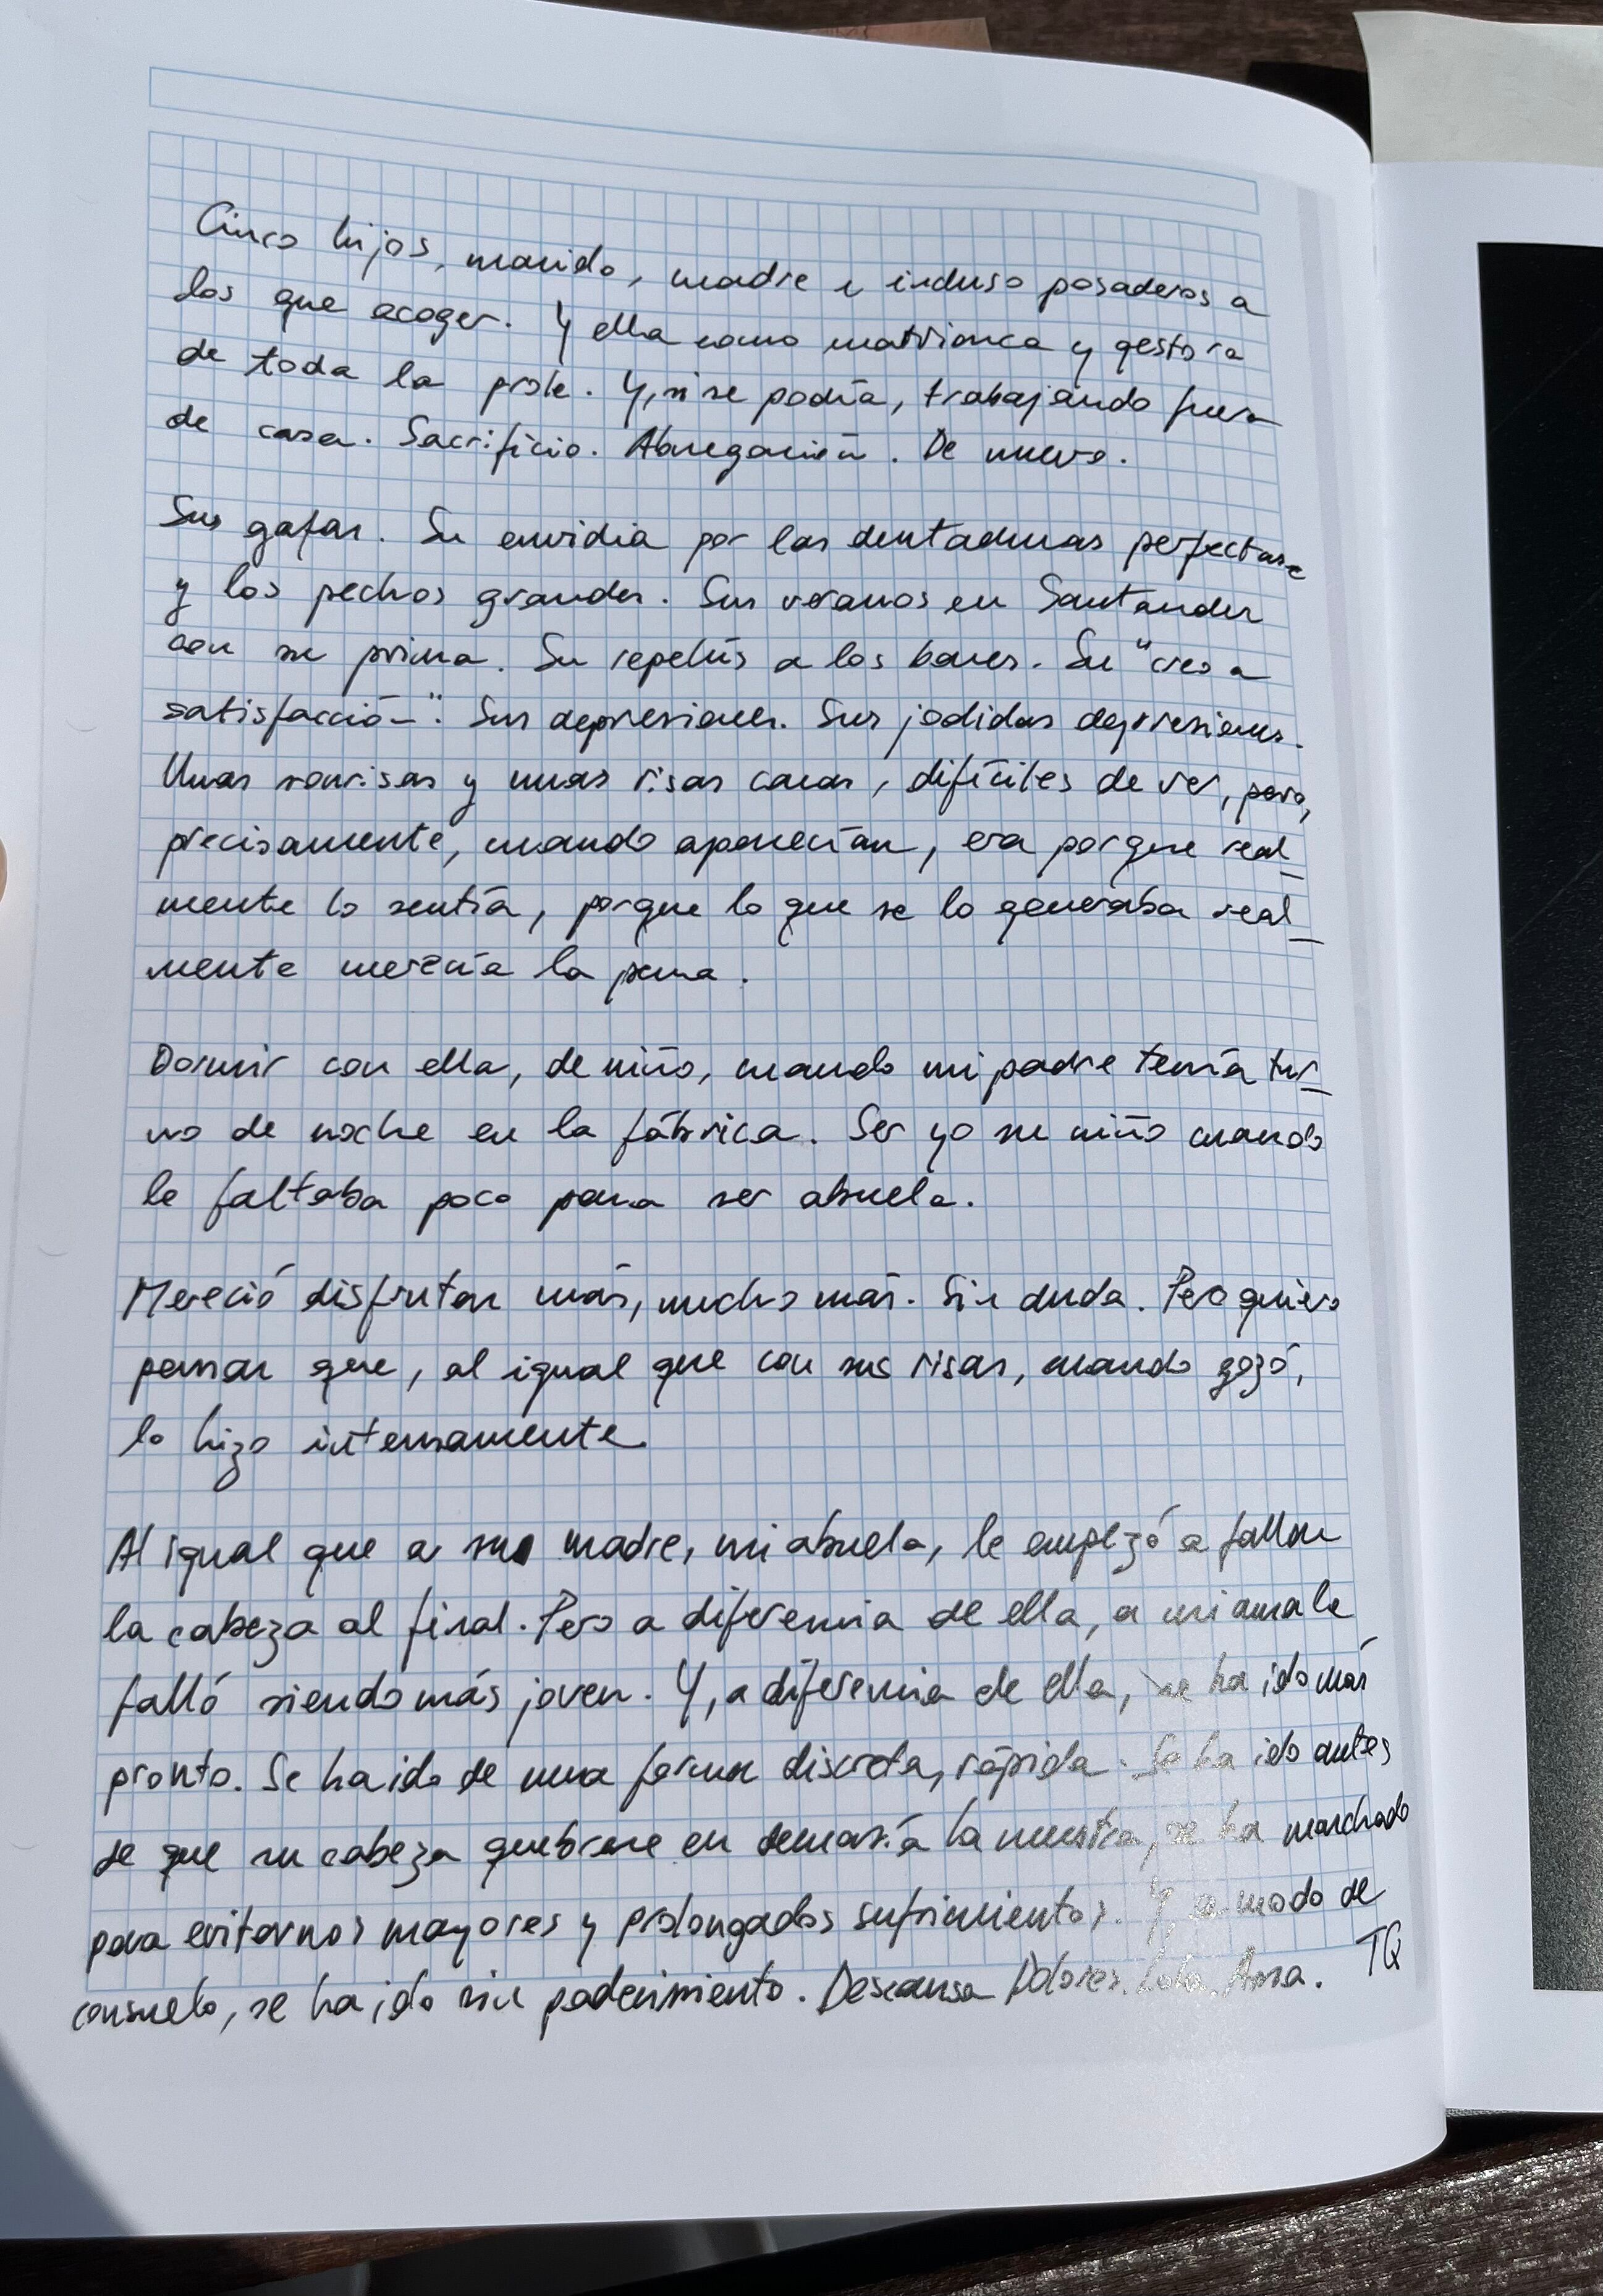 Cinco hijos, marido, madre e incluso posaderos a
los que acoger. Y ella como matrianca y gestora
de toda la prole. Y, si se podía, trabajando fuera
de casa. Sacrificio. Abnegación. De nuevo.
Sus gafas. Su envidia por las dentaduras perfectas
y los pechos grandes. Sus veranos en Santander
con su prima. Su repelús a los bares. Su "creo a
satisfacción". Sus depresiones. Sus jodidas depresiones.
Unas sonrisas y unas risas caras, difíciles de ver, pero,
precisamente, cuando aparecían, era porque real_
mente lo sentía, porque lo que se lo generaba real_
mente merecía la pena.
Dormir con ella, de niño, cuando mi padre tenía tur_
no de noche en la fábrica. Ser yo su niño cuando
le faltaba poco para ser abuela.
Mereció disfrutar más, mucho más. Sin duda. Pero quiero
pensar que, al igual que con sus risas, cuando gozó,
lo hizo intensamente.
Al igual que a su madre, mi abuela, le empezó a fallar
la cabeza al final. Pero a diferencia de ella, a mi ama le
falló siendo más joven. Y, a diferencia de ella, se ha ido más
pronto. Se ha ido de una forma discreta, rápida. Se ha ido antes
de que su cabeza quebrase en demasía la nuestra, se ha marchado
para evitarnos mayores y prolongados sufrimientos. Y, a modo de
consuelo, se ha ido sin padecimiento. Descansa Dolores. Lola. Ama. TQ